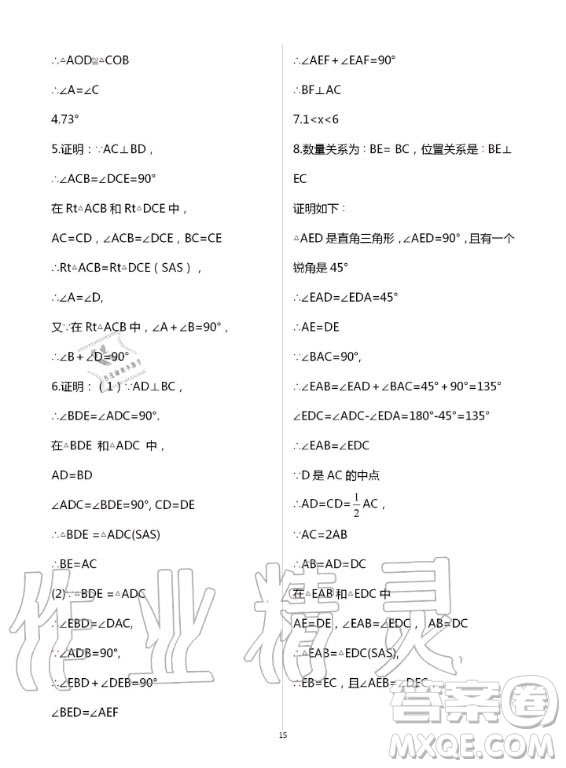 ∴△AOD≌△COB
∴∠A=∠C
4.73°
5.证明：∵AC⊥BD，
∴∠ACB=∠DCE=90°
在 Rt△ACB 和 Rt△DCE 中，
AC=CD，∠ACB=∠DCE，BC=CE
∴Rt△ACB=Rt△DCE（SAS），
∴∠A=∠D,
又∵在 Rt△ACB 中，∠A＋∠B=90°，
∴∠B＋∠D=90°
6.证明：（1）∵AD⊥BC，
∴∠BDE=∠ADC=90°.
在△BDE 和△ADC 中，
AD=BD
∠ADC=∠BDE=90°, CD=DE
∴△BDE =△ADC(SAS)
∴BE=AC
(2)∵△BDE =△ADC
∴∠EBD=∠DAC,
∵∠ADB=90°,
∴∠EBD＋∠DEB=90°
∠BED=∠AEF
∴∠AEF＋∠EAF=90°
∴BF⊥AC
7.1<x<6
8.数量关系为：BE= BC，位置关系是：BE⊥
EC
证明如下：
△AED 是直角三角形，∠AED=90°，且有一个
锐角是 45°
∴∠EAD=∠EDA=45°
∴AE=DE
∵∠BAC=90°,
∴∠EAB=∠EAD＋∠BAC=45°＋90°=135°
∠EDC=∠ADC-∠EDA=180°-45°=135°
∴∠EAB=∠EDC
∵D 是 AC 的中点
∴AD=CD=1/2 AC，
∵AC=2AB
∴AB=AD=DC
在△EAB 和△EDC 中
AE=DE，∠EAB=∠EDC， AB=DC
∴△EAB=△EDC(SAS),
∴EB=EC，且∠AEB=∠DEC
15
作业精灵
答案圈
MXQE.COM